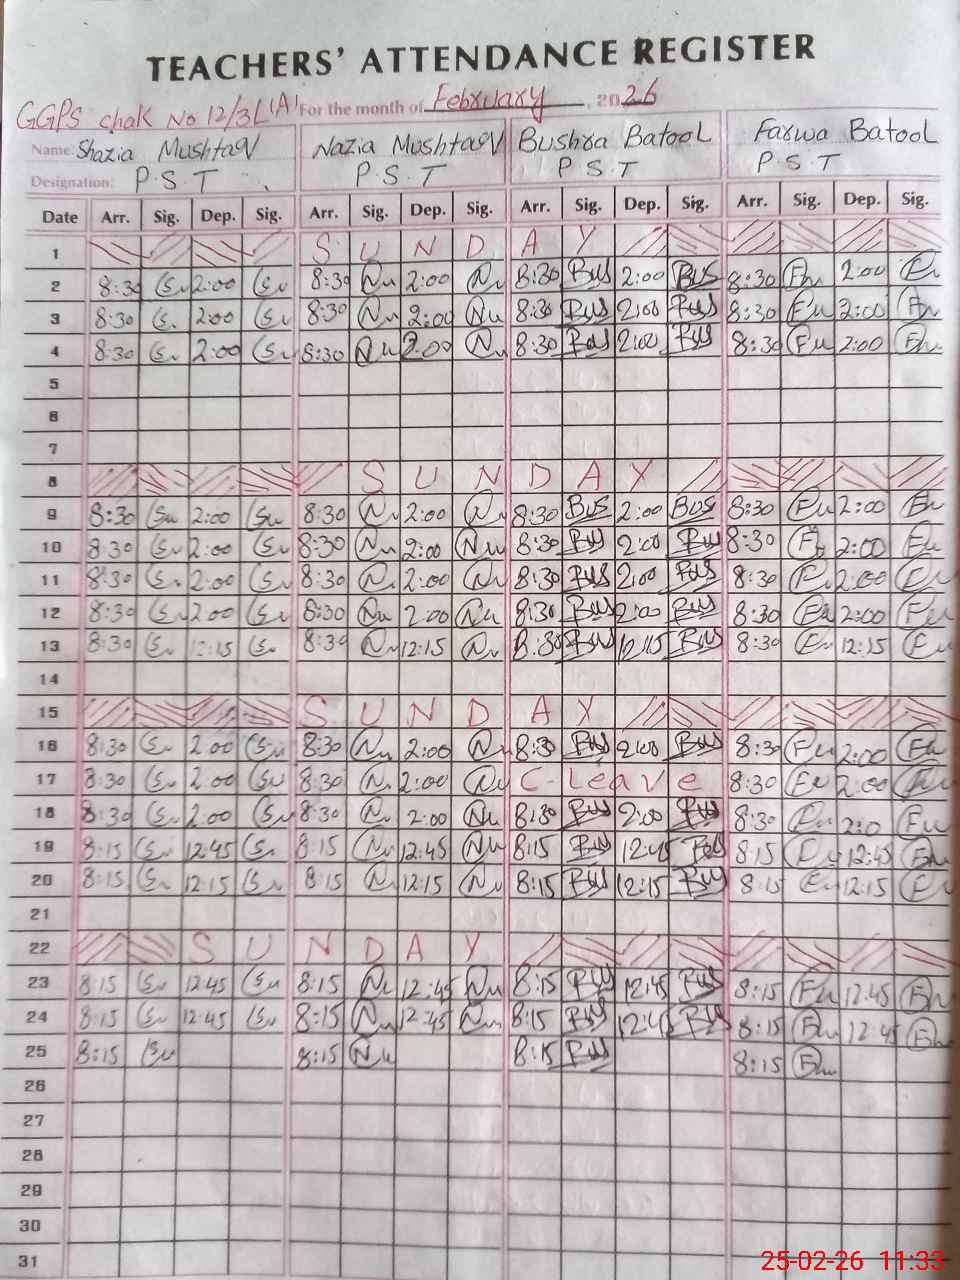 TEACHERS' ATTENDANCE REGISTER
GGPS chak No 12/3L 'A' For the month of February, 2026
Name: Shazia Mushtaq Nazia Mushtaq Bushra Batool Farwa Batool
Designation: P.S.T P.S.T P.S.T P.S.T
Date Arr. Sig. Dep. Sig. Arr. Sig. Dep. Sig. Arr. Sig. Dep. Sig. Arr. Sig. Dep. Sig.
1 S U N D A Y
2 8:30 Su 2:00 Su 8:30 Nu 2:00 Nu 8:30 Bus 2:00 Bus 8:30 2:00
3 8:30 2:00 Su 8:30 Nu 2:00 Nu 8:30 Bus 2:00 Bus 8:30 Fu 2:00
4 8:30 2:00 Su 8:30 Nu 2:00 Nu 8:30 Bus 2:00 Bus 8:30 Fu 2:00
5
6
7
8 S U N D A Y
9 8:30 Su 2:00 Su 8:30 Nu 2:00 Nu 8:30 BUS 2:00 BUS 8:30 Fu 2:00 Fu
10 8:30 Su 2:00 Su 8:30 Nu 2:00 Nu 8:30 Bus 2:00 Bus 8:30 2:00 Fu
11 8:30 2:00 Su 8:30 2:00 Nu 8:30 Bus 2:00 Bus 8:30 2:00 Fu
12 8:30 Su 2:00 Su 8:30 Nu 2:00 Nu 8:30 Bus 2:00 Bus 8:30 Fu 2:00 Fu
13 8:30 Su 12:15 8:30 Nu 12:15 Nu 8:30 Bus 12:15 Bus 8:30 12:15 Fu
14
15 S U N D A Y
16 8:30 Su 2:00 Su 8:30 Nu 2:00 Nu 8:30 Bus 2:00 Bus 8:30 Fu 2:00 Fu
17 8:30 Su 2:00 Su 8:30 2:00 Nu C-Leave 8:30 Fu 2:00
18 8:30 Su 2:00 Su 8:30 2:00 Nu 8:30 Bus 2:00 Bus 8:30 Fu 2:0 Fu
19 8:15 Su 12:45 8:15 Nu 12:45 Nu 8:15 Bus 12:45 Bus 8:15 12:45
20 8:15 Su 12:15 Su 8:15 Nu 12:15 Nu 8:15 Bus 12:15 Bus 8:15 12:15 Fu
21
22 S U N D A Y
23 8:15 Su 12:45 Su 8:15 Nu 12:45 Nu 8:15 Bus 12:45 Bus 8:15 Fu 12:45
24 8:15 Su 12:45 Su 8:15 Nu 12:45 Nu 8:15 Bus 12:45 Bus 8:15 12:45
25 8:15 Su 8:15 Nu 8:15 Bus 8:15
26
27
28
29
30
31
25-02-26 11:33